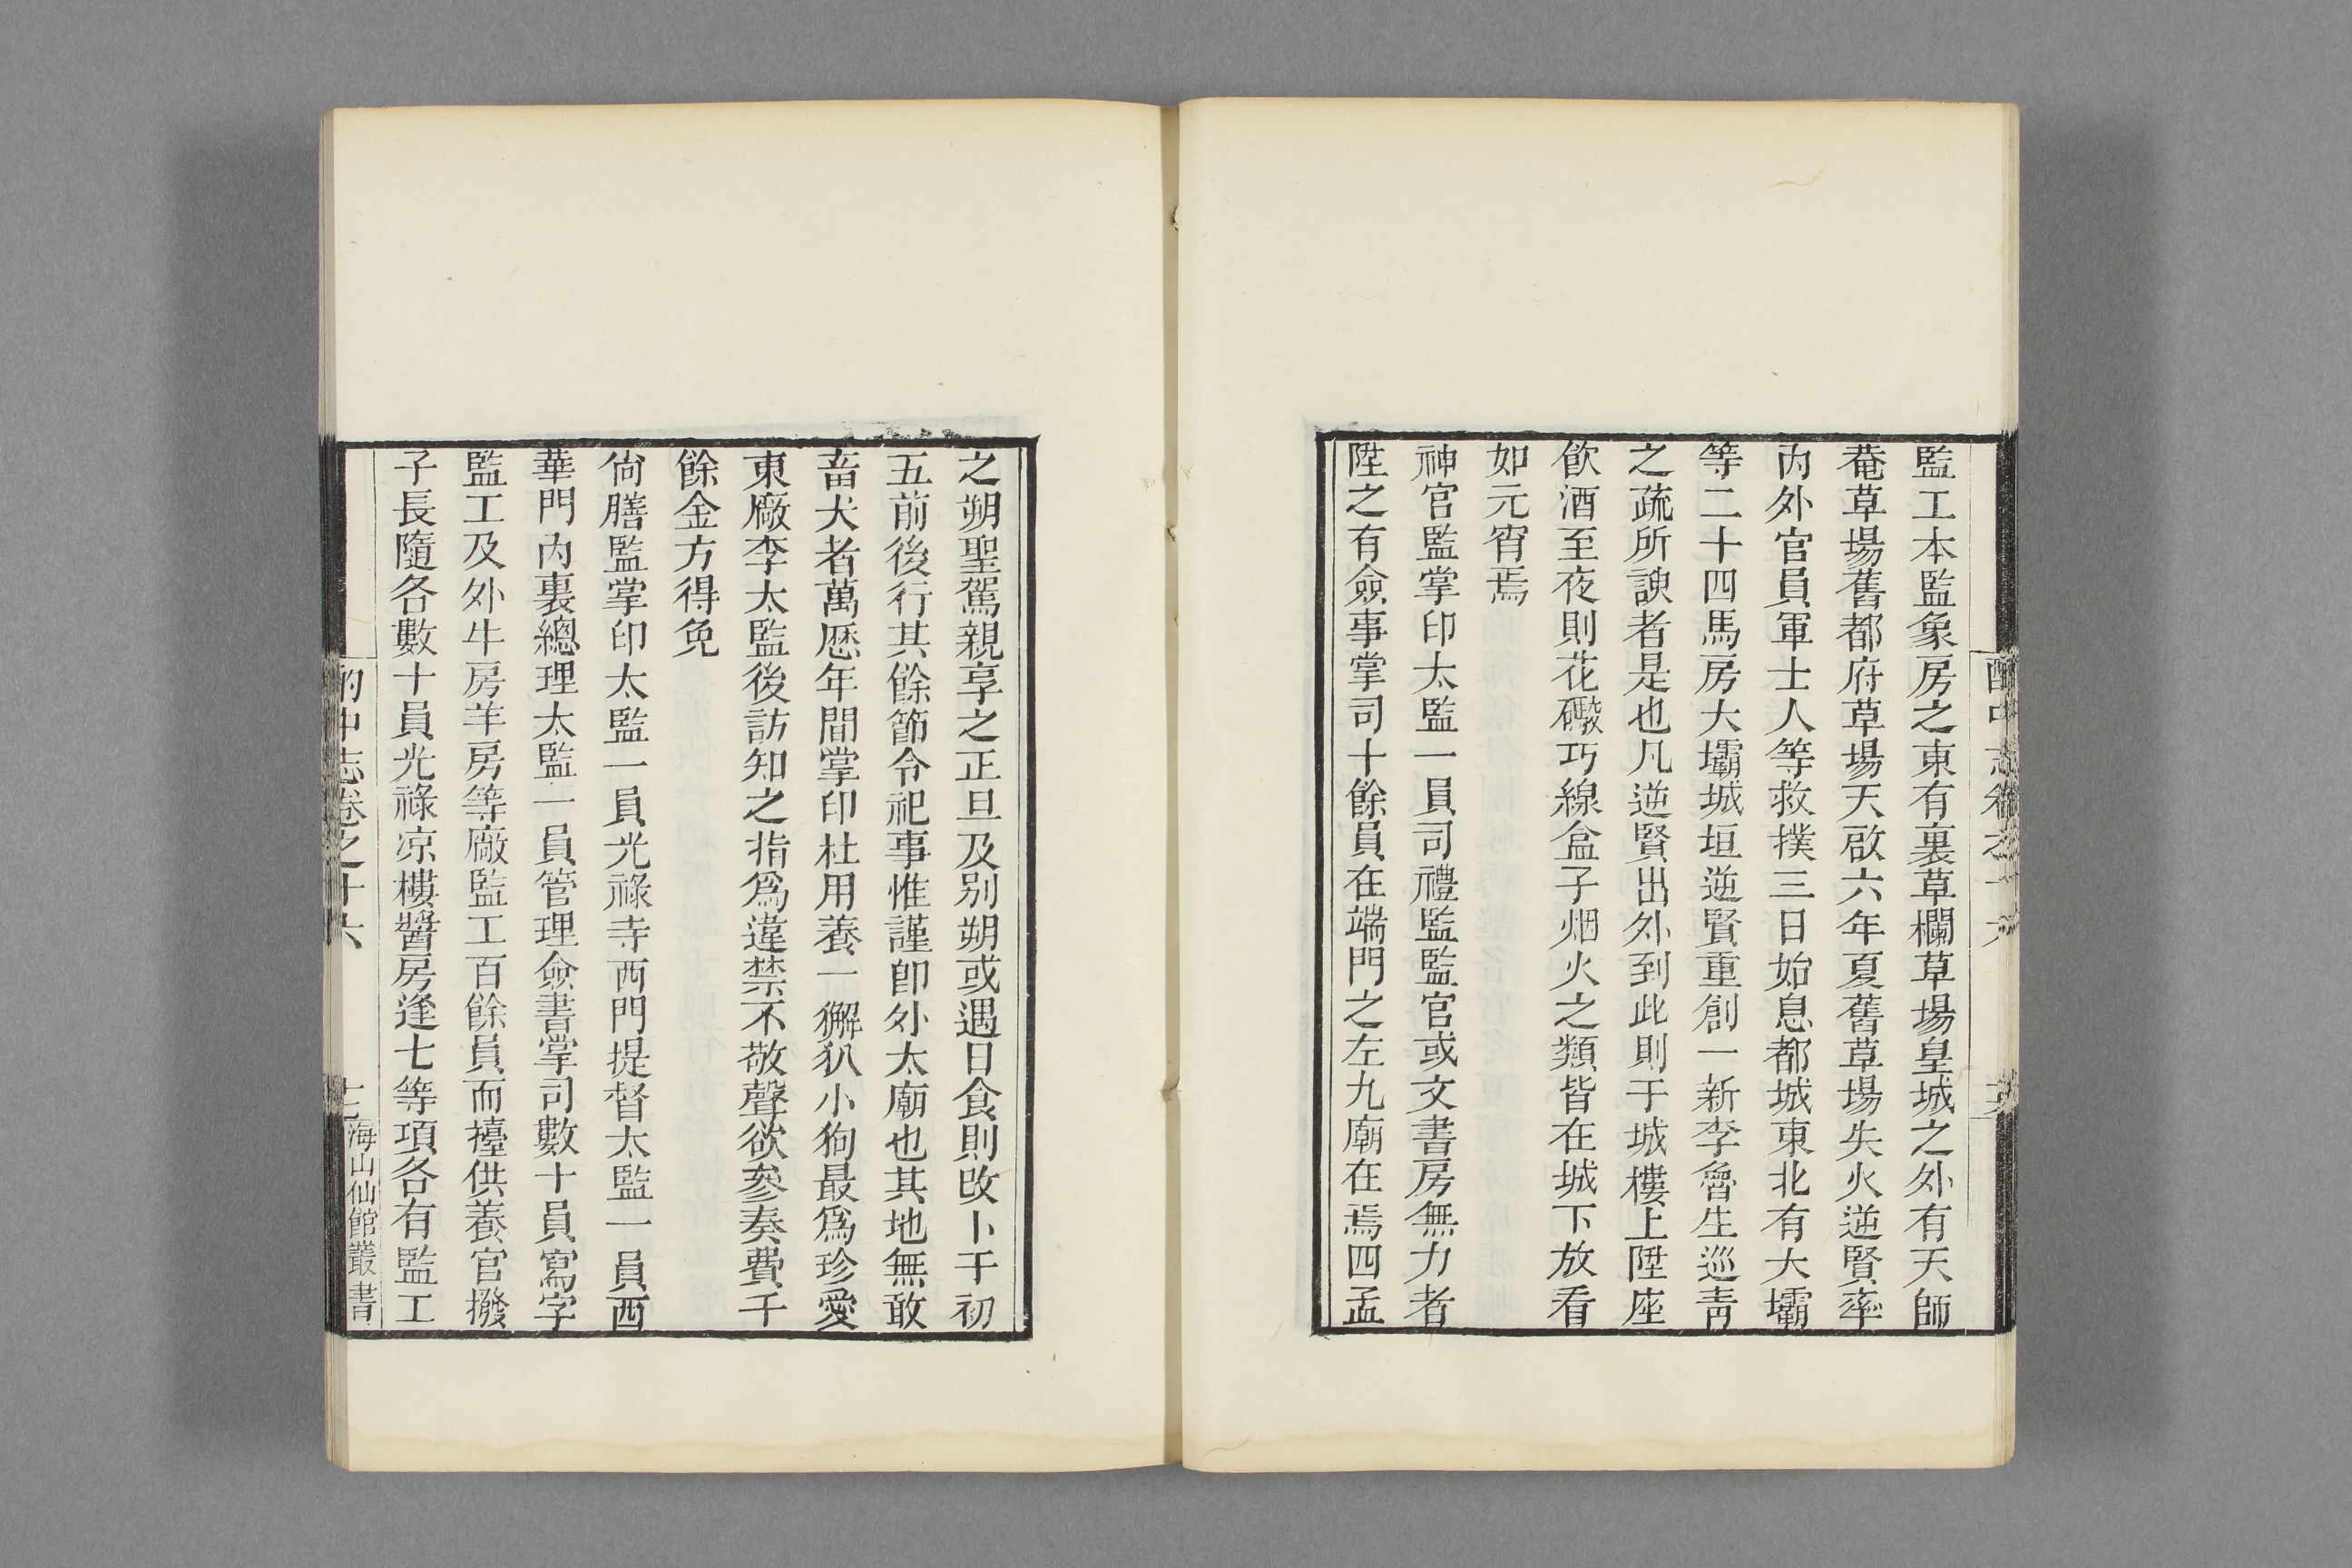 監工本監象房之東有裏草欄草場皇城之外有天師
菴草場舊都府草場天啟六年夏舊草場失火逆賢率
內外官員軍士人等救撲三日始息都城東北有大壩
等二十四馬房大壩城垣逆賢重創一新李魯生巡靑
之疏所諛者是也凡逆賢出外到此則于城樓上陞座
飮酒至夜則花礮巧線盒子烟火之類皆在城下放看
如元宵焉
神官監掌印太監一員司禮監監官或文書房無力者
陞之有僉事掌司十餘員在端門之左九廟在焉四孟
之朔聖駕親享之正旦及别朔或遇日食則改卜于初
五前後行其餘節令祀事惟謹卽外太廟也其地無敢
畜犬者萬厯年間掌印杜用養一獬𤝡小狗最爲珍愛
東廠李太監後訪知之指爲違禁不敬聲欲參奏費千
餘金方得免
尙膳監掌印太監一員光祿寺西門提督太監一員西
華門內裏總理太監一員管理僉書掌司數十員寫字
監工及外牛房羊房等廠監工百餘員而擡供養官撥
子長隨各數十員光祿凉樓醬房逢七等項各有監工
酌中志卷之十六
海山仙館叢書